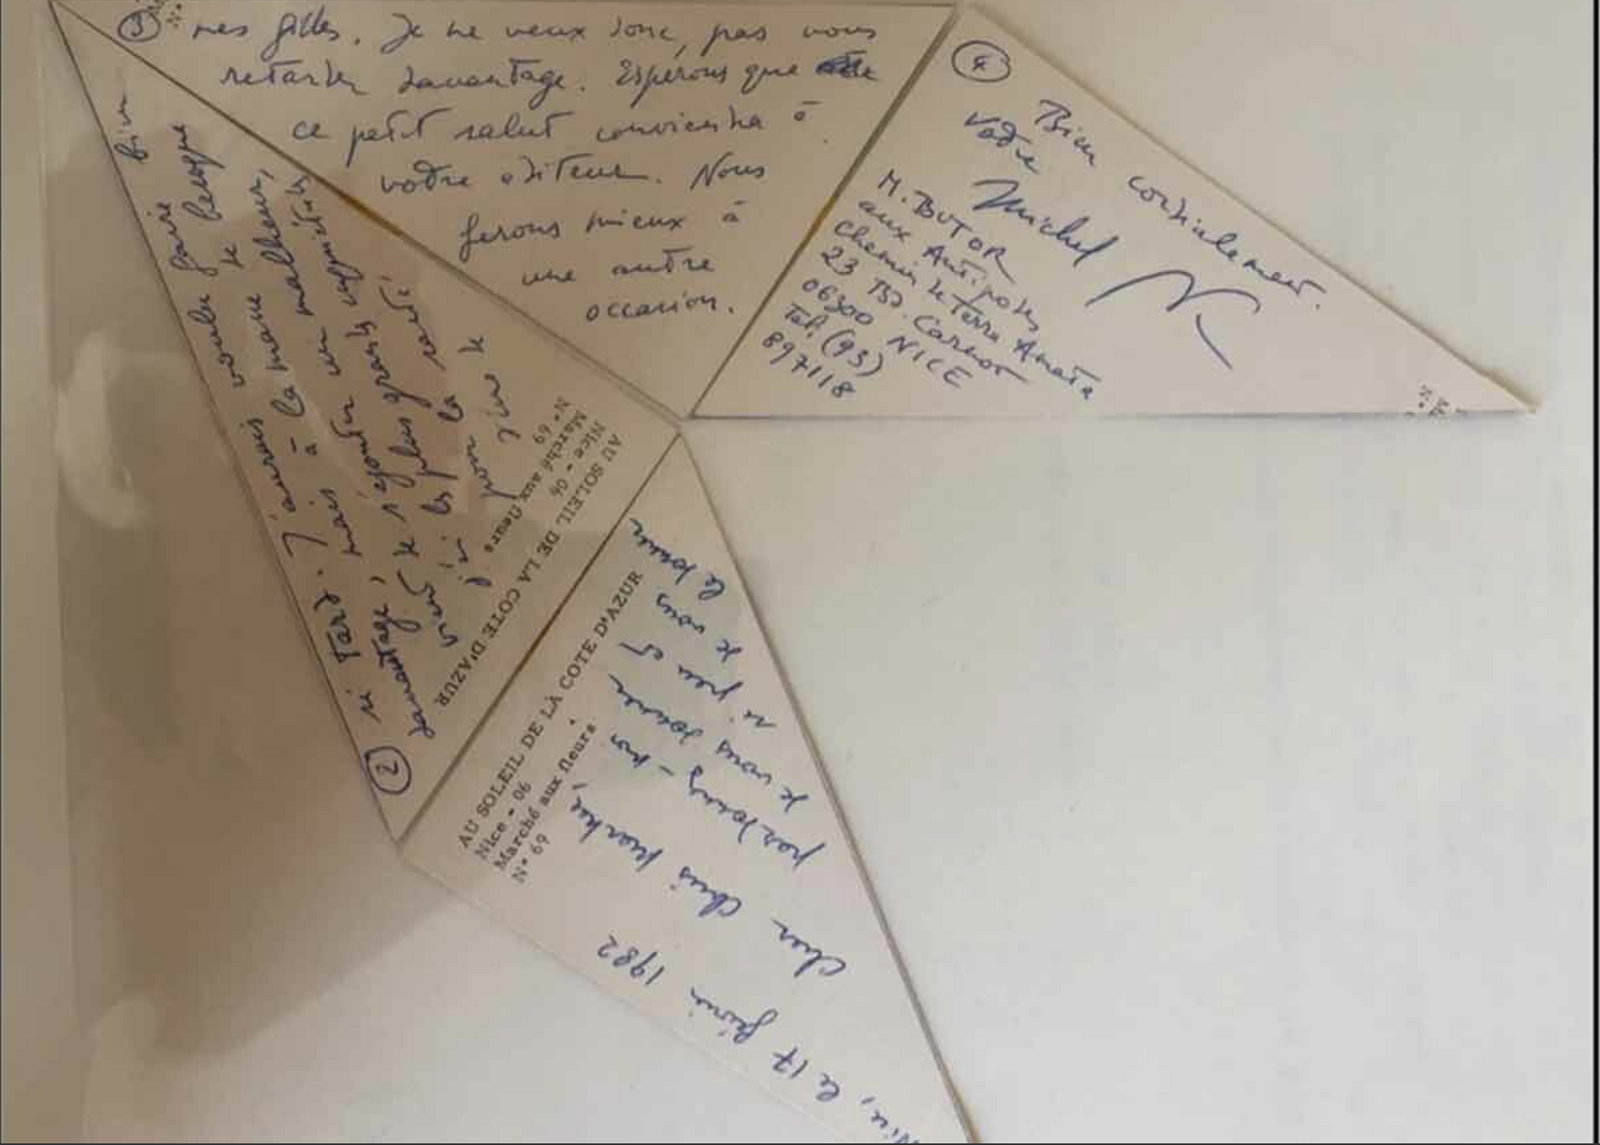 Nice, le 17 février 1982
Cher Chris Marker,
pardonnez-moi
je vous donne
si peu et
je vous
le donne
AU SOLEIL DE LA COTE D'AZUR
Nice - 06
Marché aux fleurs
N° 69
2
si tard. J'aurais voulu faire bien
davantage, mais à la masse de besogne
vient de s'ajouter un malheur,
j'ai les plus grandes inquiétudes
pour la santé
d'une de
AU SOLEIL DE LA COTE D'AZUR
Nice - 06
Marché aux fleurs
N° 69
3
mes filles. Je ne veux donc, pas vous
retarder davantage. Espérons que
ce petit salut conviendra à
votre éditeur. Nous
ferons mieux à
une autre
occasion.
4
Bien cordialement.
votre
Michel
M. BUTOR
aux Antipodes
chemin de Terra Amata
23 Bd. Carnot
06300 NICE
Tél. (93)
897118